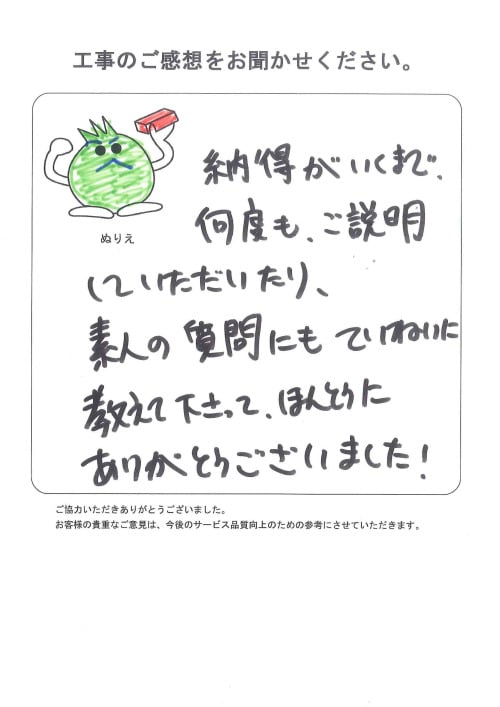 工事のご感想をお聞かせください。
ぬりえ
納得がいくまで、
何度も、ご説明
していただいたり、
素人の質問にもていねいに
教えて下さって、ほんとうに
ありがとうございました!
ご協力いただきありがとうございました。
お客様の貴重なご意見は、今後のサービス品質向上のための参考にさせていただきます。